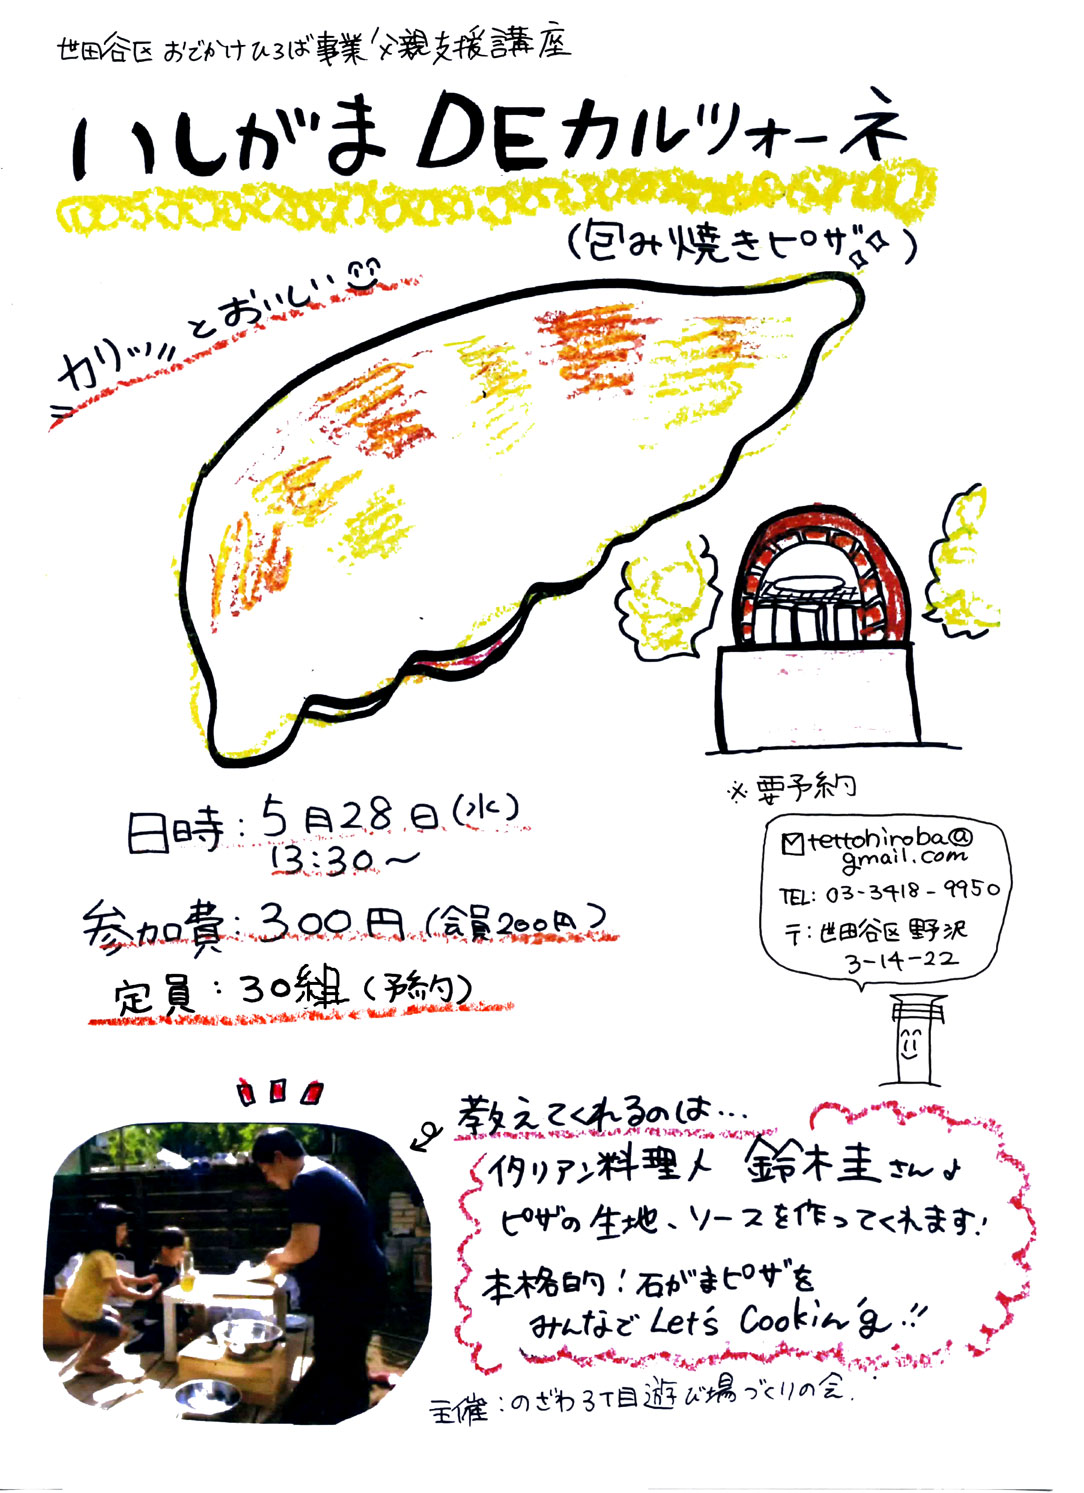 世田谷区 おでかけひろば事業/父親支援講座
いしがま DE カルツォーネ
(包み焼きピザ)
カリッ とおいしい
日時:5月28日(水)
13:30〜
参加費:300円(会員200円)
定員:30組(予約)
※要予約
tettohiroba@
gmail.com
TEL:03-3418-9950
〒:世田谷区野沢
3-14-22
教えてくれるのは…
イタリアン料理人 鈴木圭さん♪
ピザの生地、ソースを作ってくれます!
本格的!石がまピザを
みんなで Let's Cookin'g!!
主催:のざわ3丁目遊び場づくりの会.